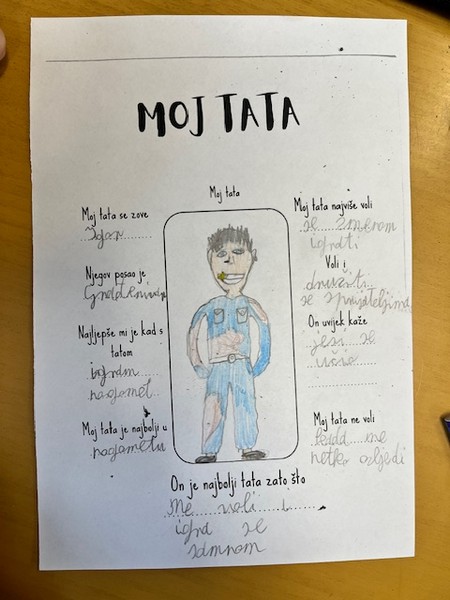 MOJ TATA
Moj tata
Moj tata se zove
Igor
Njegov posao je
Najljepše mi je kad s
tatom
igram
nogomet
Moj tata je najbolji u
nogometu
Moj tata najviše voli
se samnom
igrati
Voli i
družit
se sprijateljima
On uvijek kaže
jesi se
učio
Moj tata ne voli
kada me
netko ozljedi
On je najbolji tata zato što
Me voli i
igra se
samnom